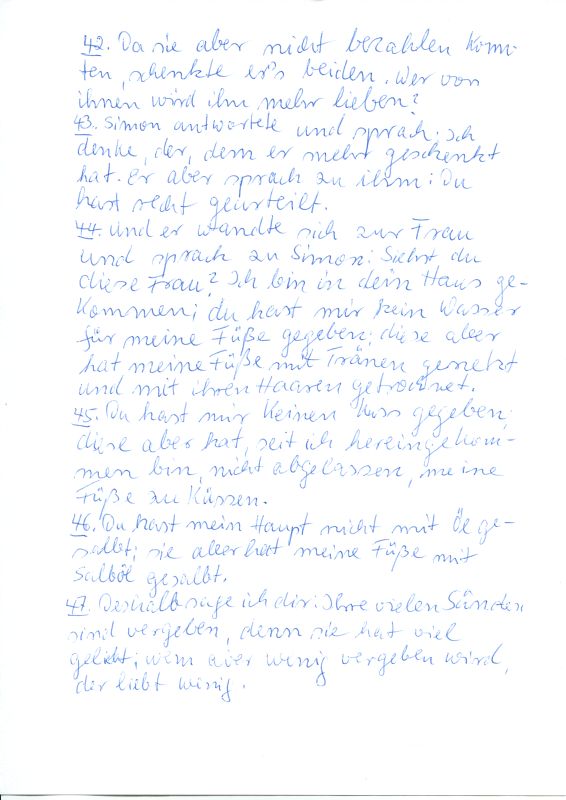 42. Da sie aber nicht bezahlen konn-
ten, schenkte er's beiden. Wer von
ihnen wird ihm mehr lieben?
43. Simon antwortete und sprach: Ich
denke, der, dem er mehr geschenkt
hat. Er aber sprach zu ihm: Du
hast recht geurteilt.
44. Und er wandte sich zur Frau
und sprach zu Simon: Siehst du
diese Frau? Ich bin in dein Haus ge-
kommen; du hast mir kein Wasser
für meine Füße gegeben; diese aber
hat meine Füße mit Tränen genetzt
und mit ihren Haaren getrocknet.
45. Du hast mir keinen Kuss gegeben;
diese aber hat, seit ich hereingekom-
men bin, nicht abgelassen, meine
Füße zu küssen.
46. Du hast mein Haupt nicht mit Öl ge-
salbt; sie aber hat meine Füße mit
Salböl gesalbt.
47. Deshalb sage ich dir: Ihre vielen Sünden
sind vergeben, denn sie hat viel
geliebt; wem aber wenig vergeben wird,
der liebt wenig.